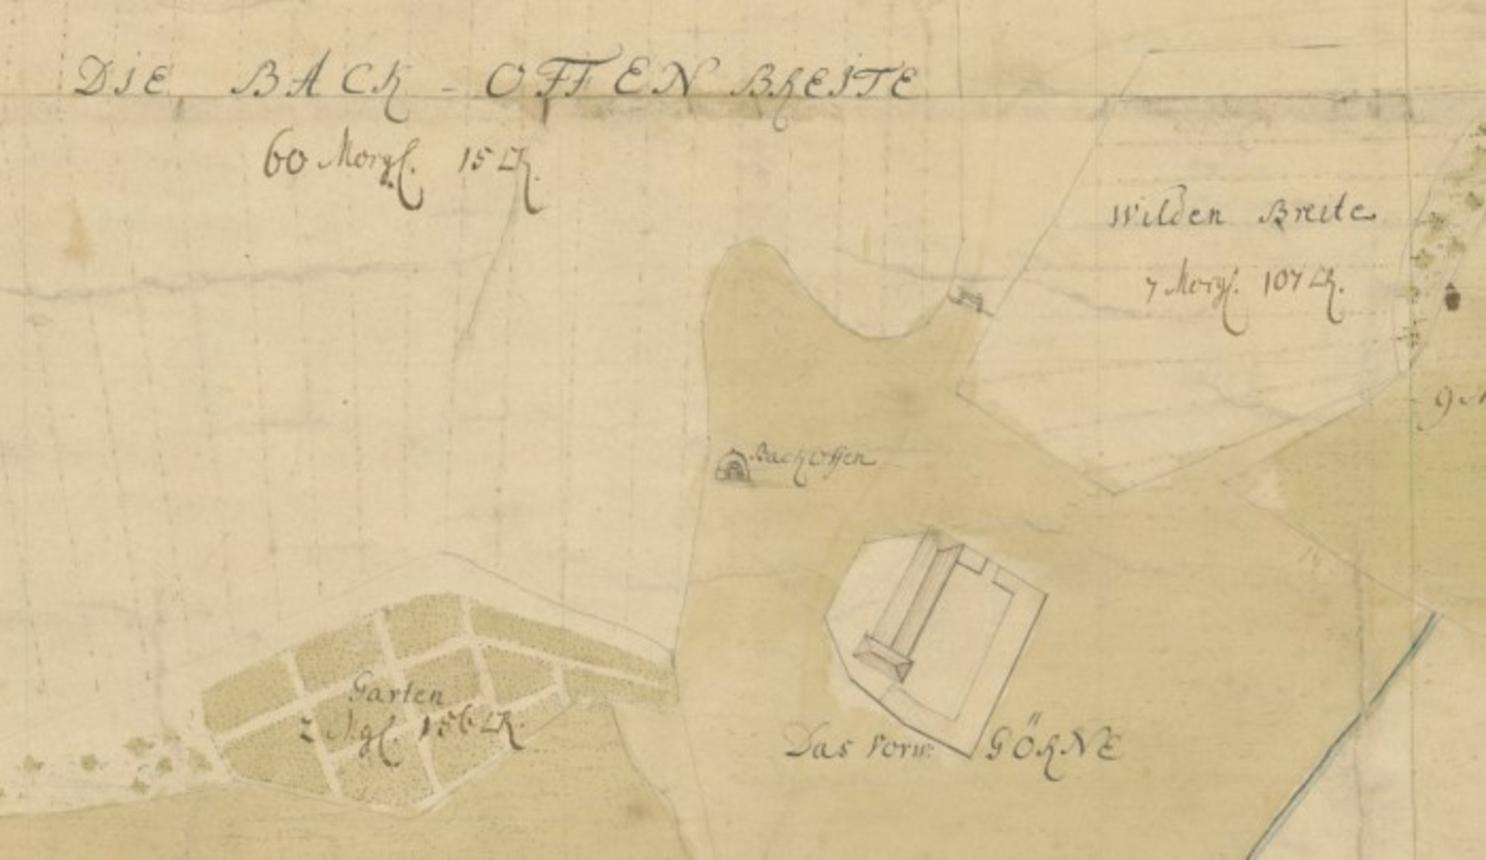 DIE BACK-OFFEN BREITE
60 Morgl. 15 □R.
Wilden Breite
7 Morgl. 107 □R.
9
BackOffen
Garten
2 Mgl. 156 □R.
Das Vorw: GÖRNE